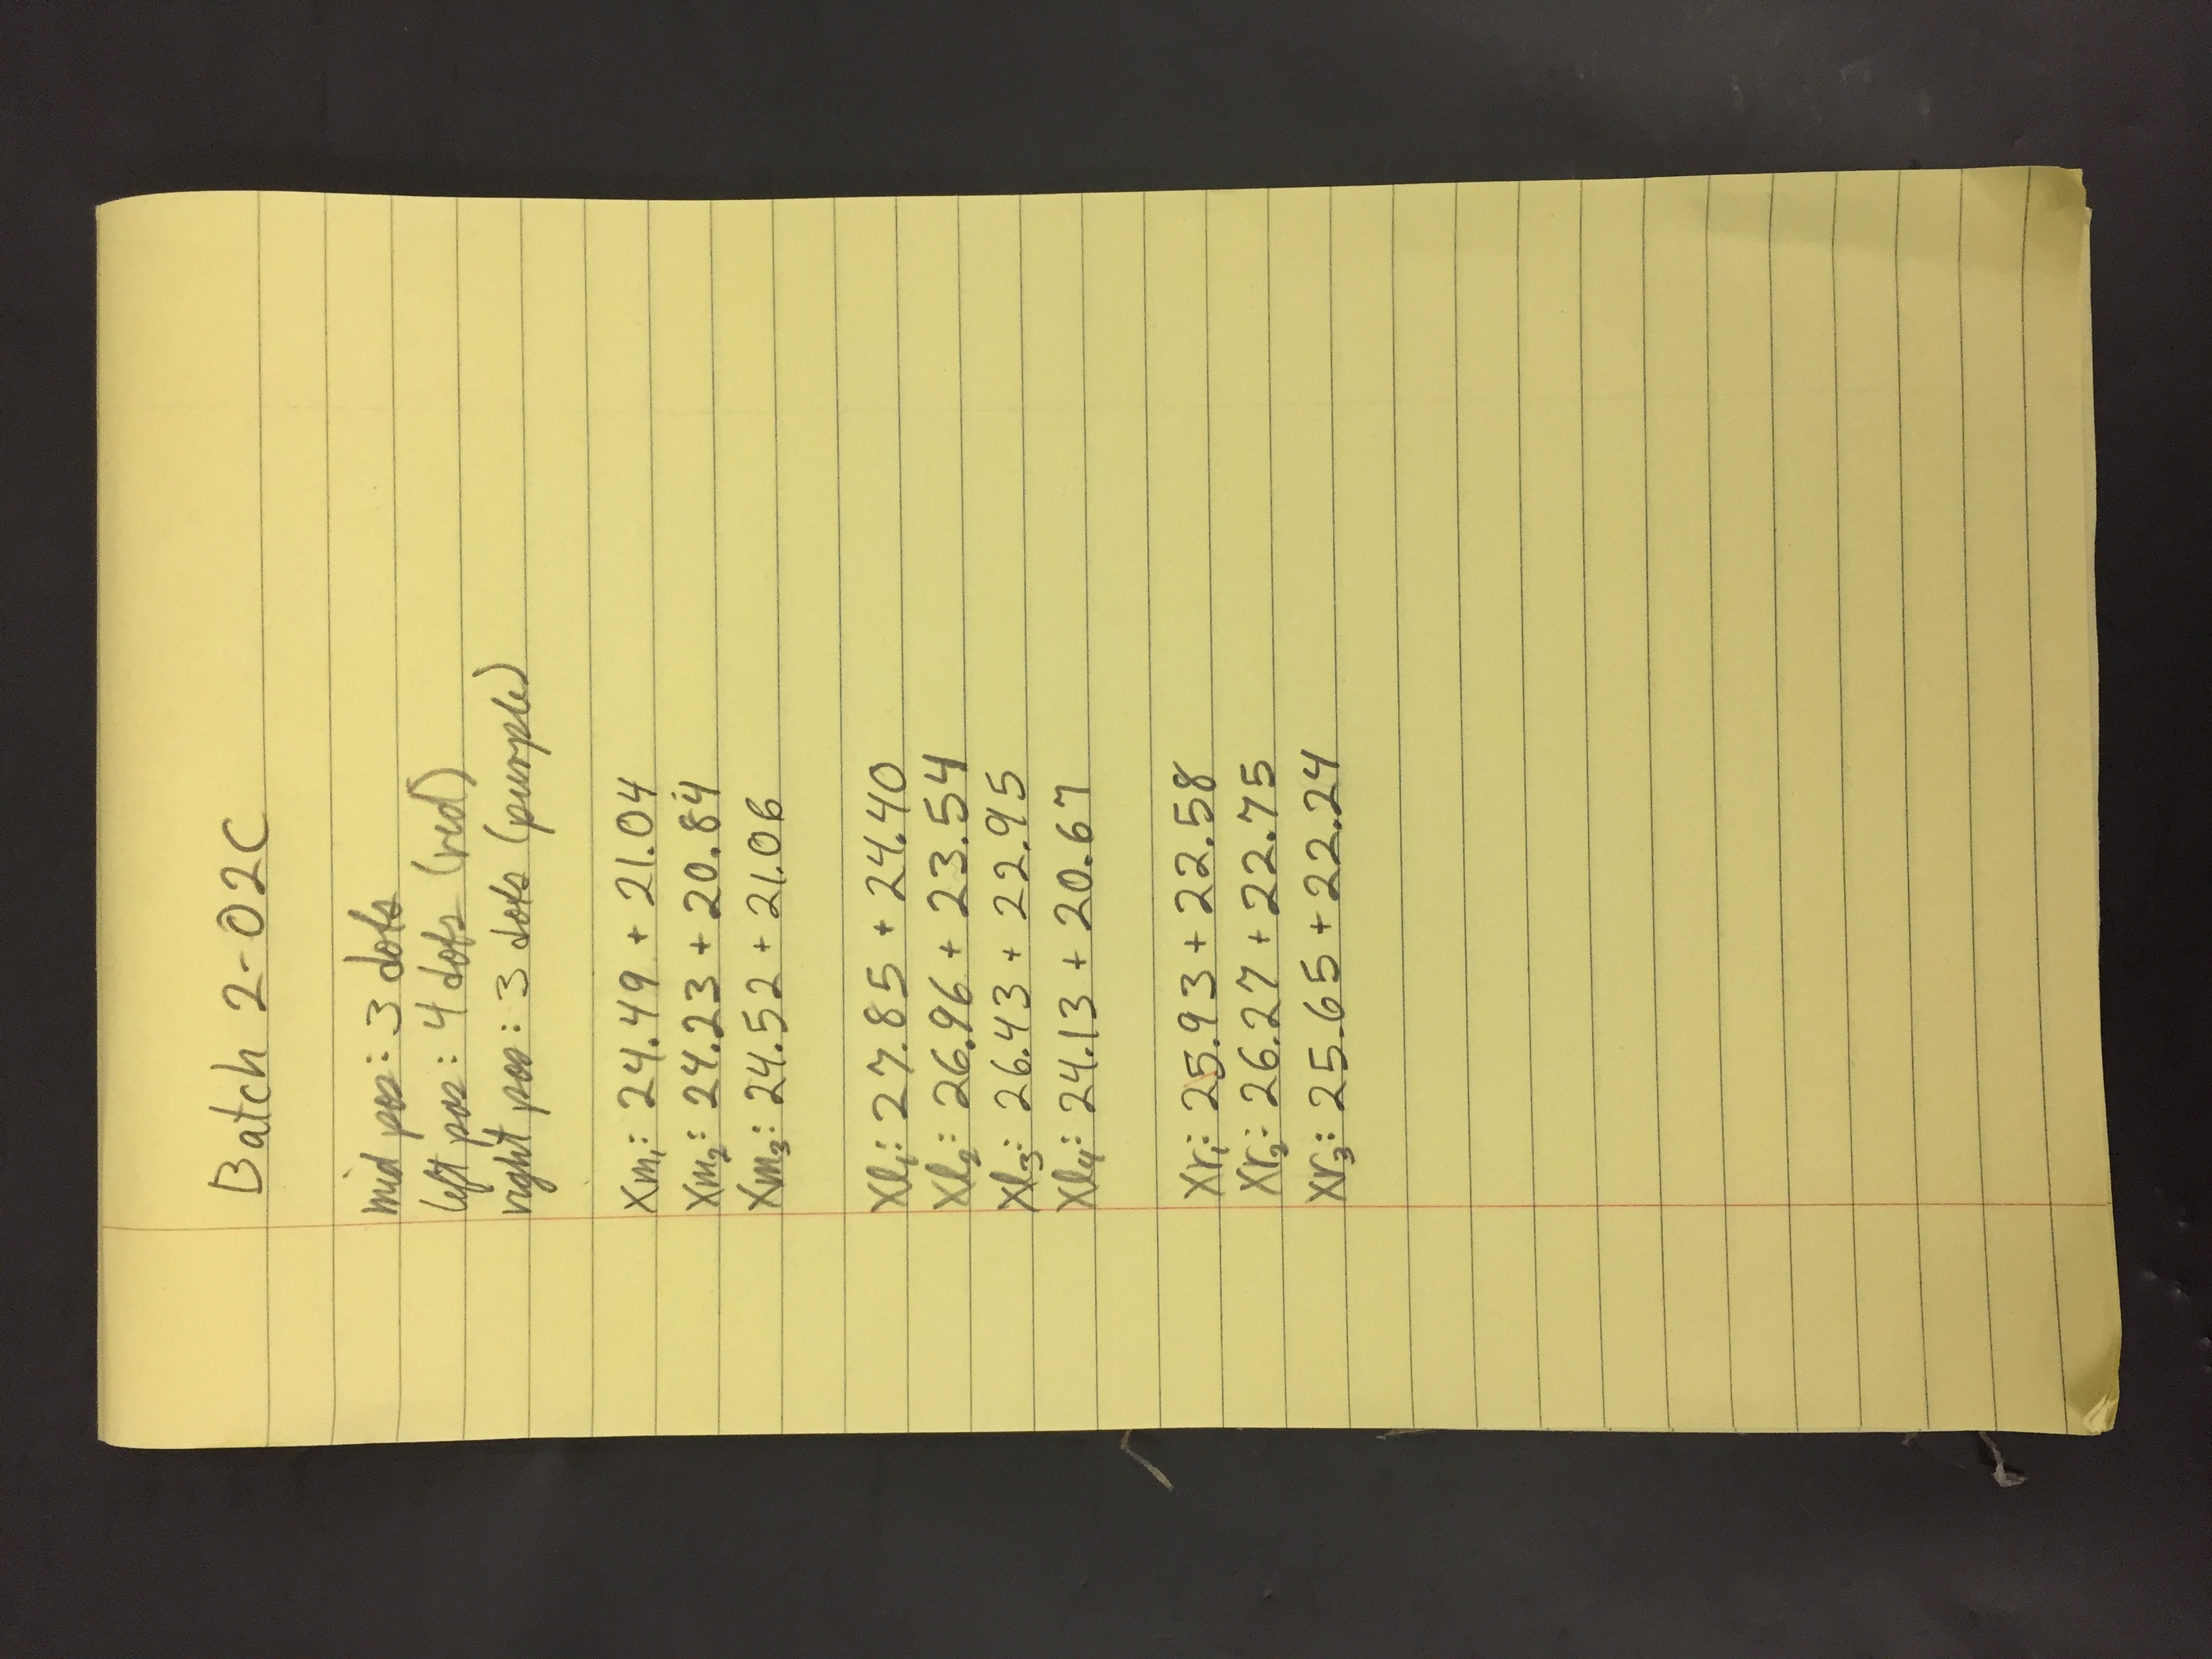 Batch 2-02C
mid pos: 3 dots
left pos: 4 dots (red)
right pos: 3 dots (purple)
Xm₁: 24.49 + 21.04
Xm₂: 24.23 + 20.84
Xm₃: 24.52 + 21.06
Xl₁: 27.85 + 24.40
Xl₂: 26.96 + 23.54
Xl₃: 26.43 + 22.95
Xl₄: 24.13 + 20.67
Xr₁: 25.93 + 22.58
Xr₂: 26.27 + 22.75
Xr₃: 25.65 + 22.24